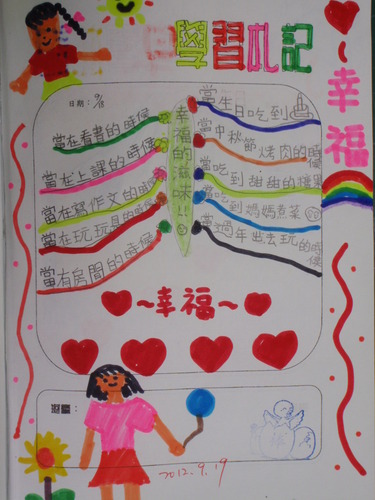 學習札記
♡~幸福
日期：9/18
幸福的滋味！！
當在看書的時候
當在上課的時候
當在寫作文的時候
當在玩玩具的時候
當有房間的時候
當生日吃到
當中秋節烤肉的時候
當吃到甜甜的糖果
當吃到媽媽煮菜
當過年出去玩的時候
~幸福~
迴響：
2012.9.19